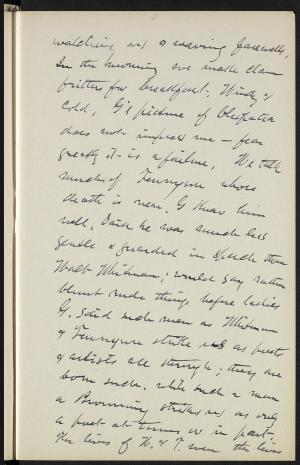 watching us & waving farewells,
In the morning we made clam
fritters for breakfast. Windy &
cold, G's picture of Cleopatra
does not impress me – fear
greatly it is a failure. We talk
much of Tennyson whose
death is near. G knew him
well, Said he was much less
gentle & guarded in speech than
Walt Whitman; would say rather
blunt rude things before ladies
G. said such men as Whitman
& Tennyson strike us as poets
& artists all through; they are
born such. while such a man
a Browning strikes us as only
a poet at times or in part—
The lives of W. & T. were the lives